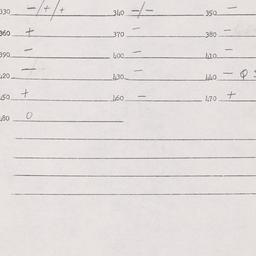 330 −/+/+ 340 −/− 350 −
360 + 370 − 380 −
390 − 400 − 410 −
420 − 430 − 440 − Q
450 + 460 − 470 +
480 0